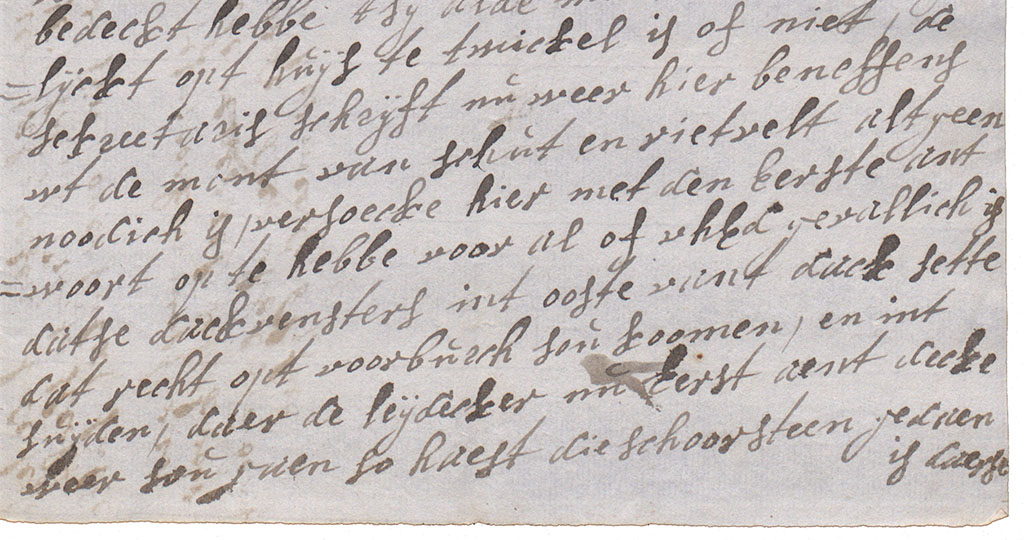 bedeckt hebbe tsy
=lyckt opt huys te twickel is of niet, de
sekreetaris schryft nu weer hier beneffens
wt de mont van schut en rietvelt altgeen
noodich is, versoecke hier met den eerste ant
=woort op te hebbe voor al of vhEd gevallich is
datse dackvensters int ooste vant dack sette
dat recht opt voorburch sou koomen, en int
suyden, daer de leydecker nu eerst aent decke
weer sou gaen so haest die schoorsteen gedaen
is daerse